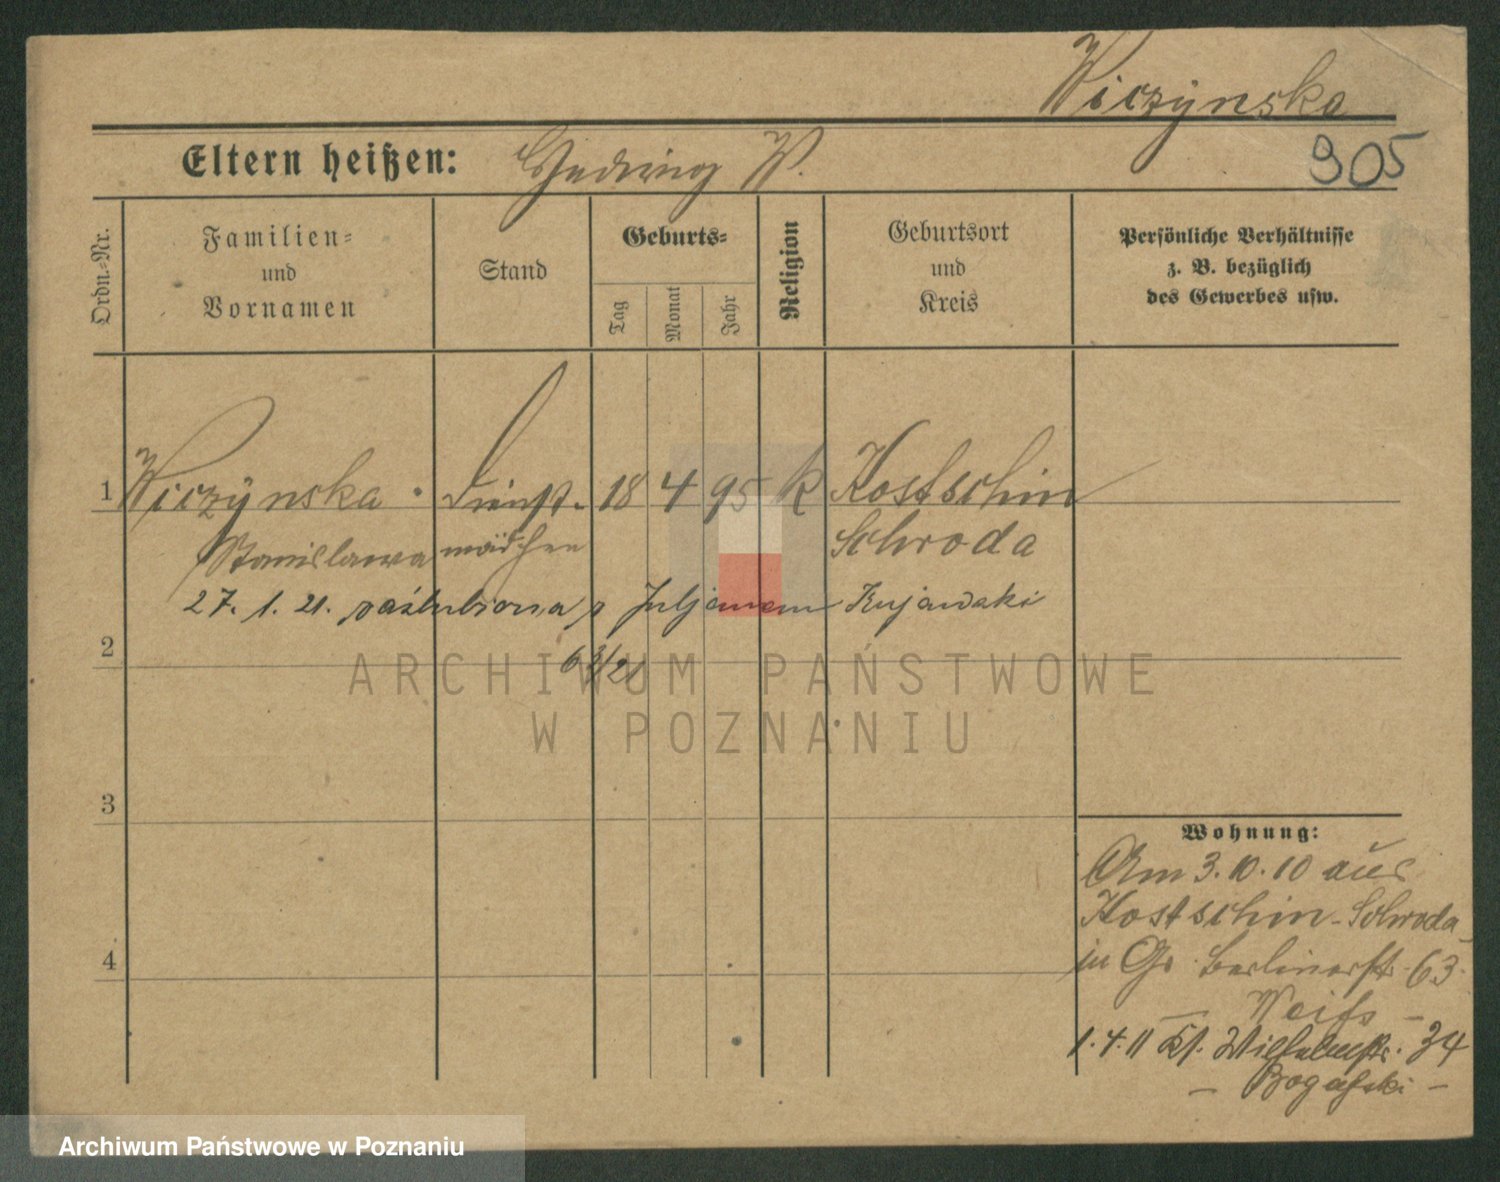 Wiczynska
905
Eltern heißen: Hedwig W.
Ordn.-Nr.
Familien- und Vornamen
Stand
Geburts-
Tag
Monat
Jahr
Religion
Geburtsort und Kreis
Persönliche Verhältnisse
z. B. bezüglich
des Gewerbes usw.
1 Wiczynska Dienst- 18 4 95 k Kostschin
Stanislawa mädchen Schroda
27. 1. 21. zaślubiona z Juljanem Kujawski
2
3
4
Wohnung:
Am 3.10.10 aus
Kostschin-Schroda
in Gr. Berlinerstr. 63.
— Weiss —
1.4.11 Kl. Wilhelmstr. 34
ARCHIWUM PAŃSTWOWE
W POZNANIU
Archiwum Państwowe w Poznaniu